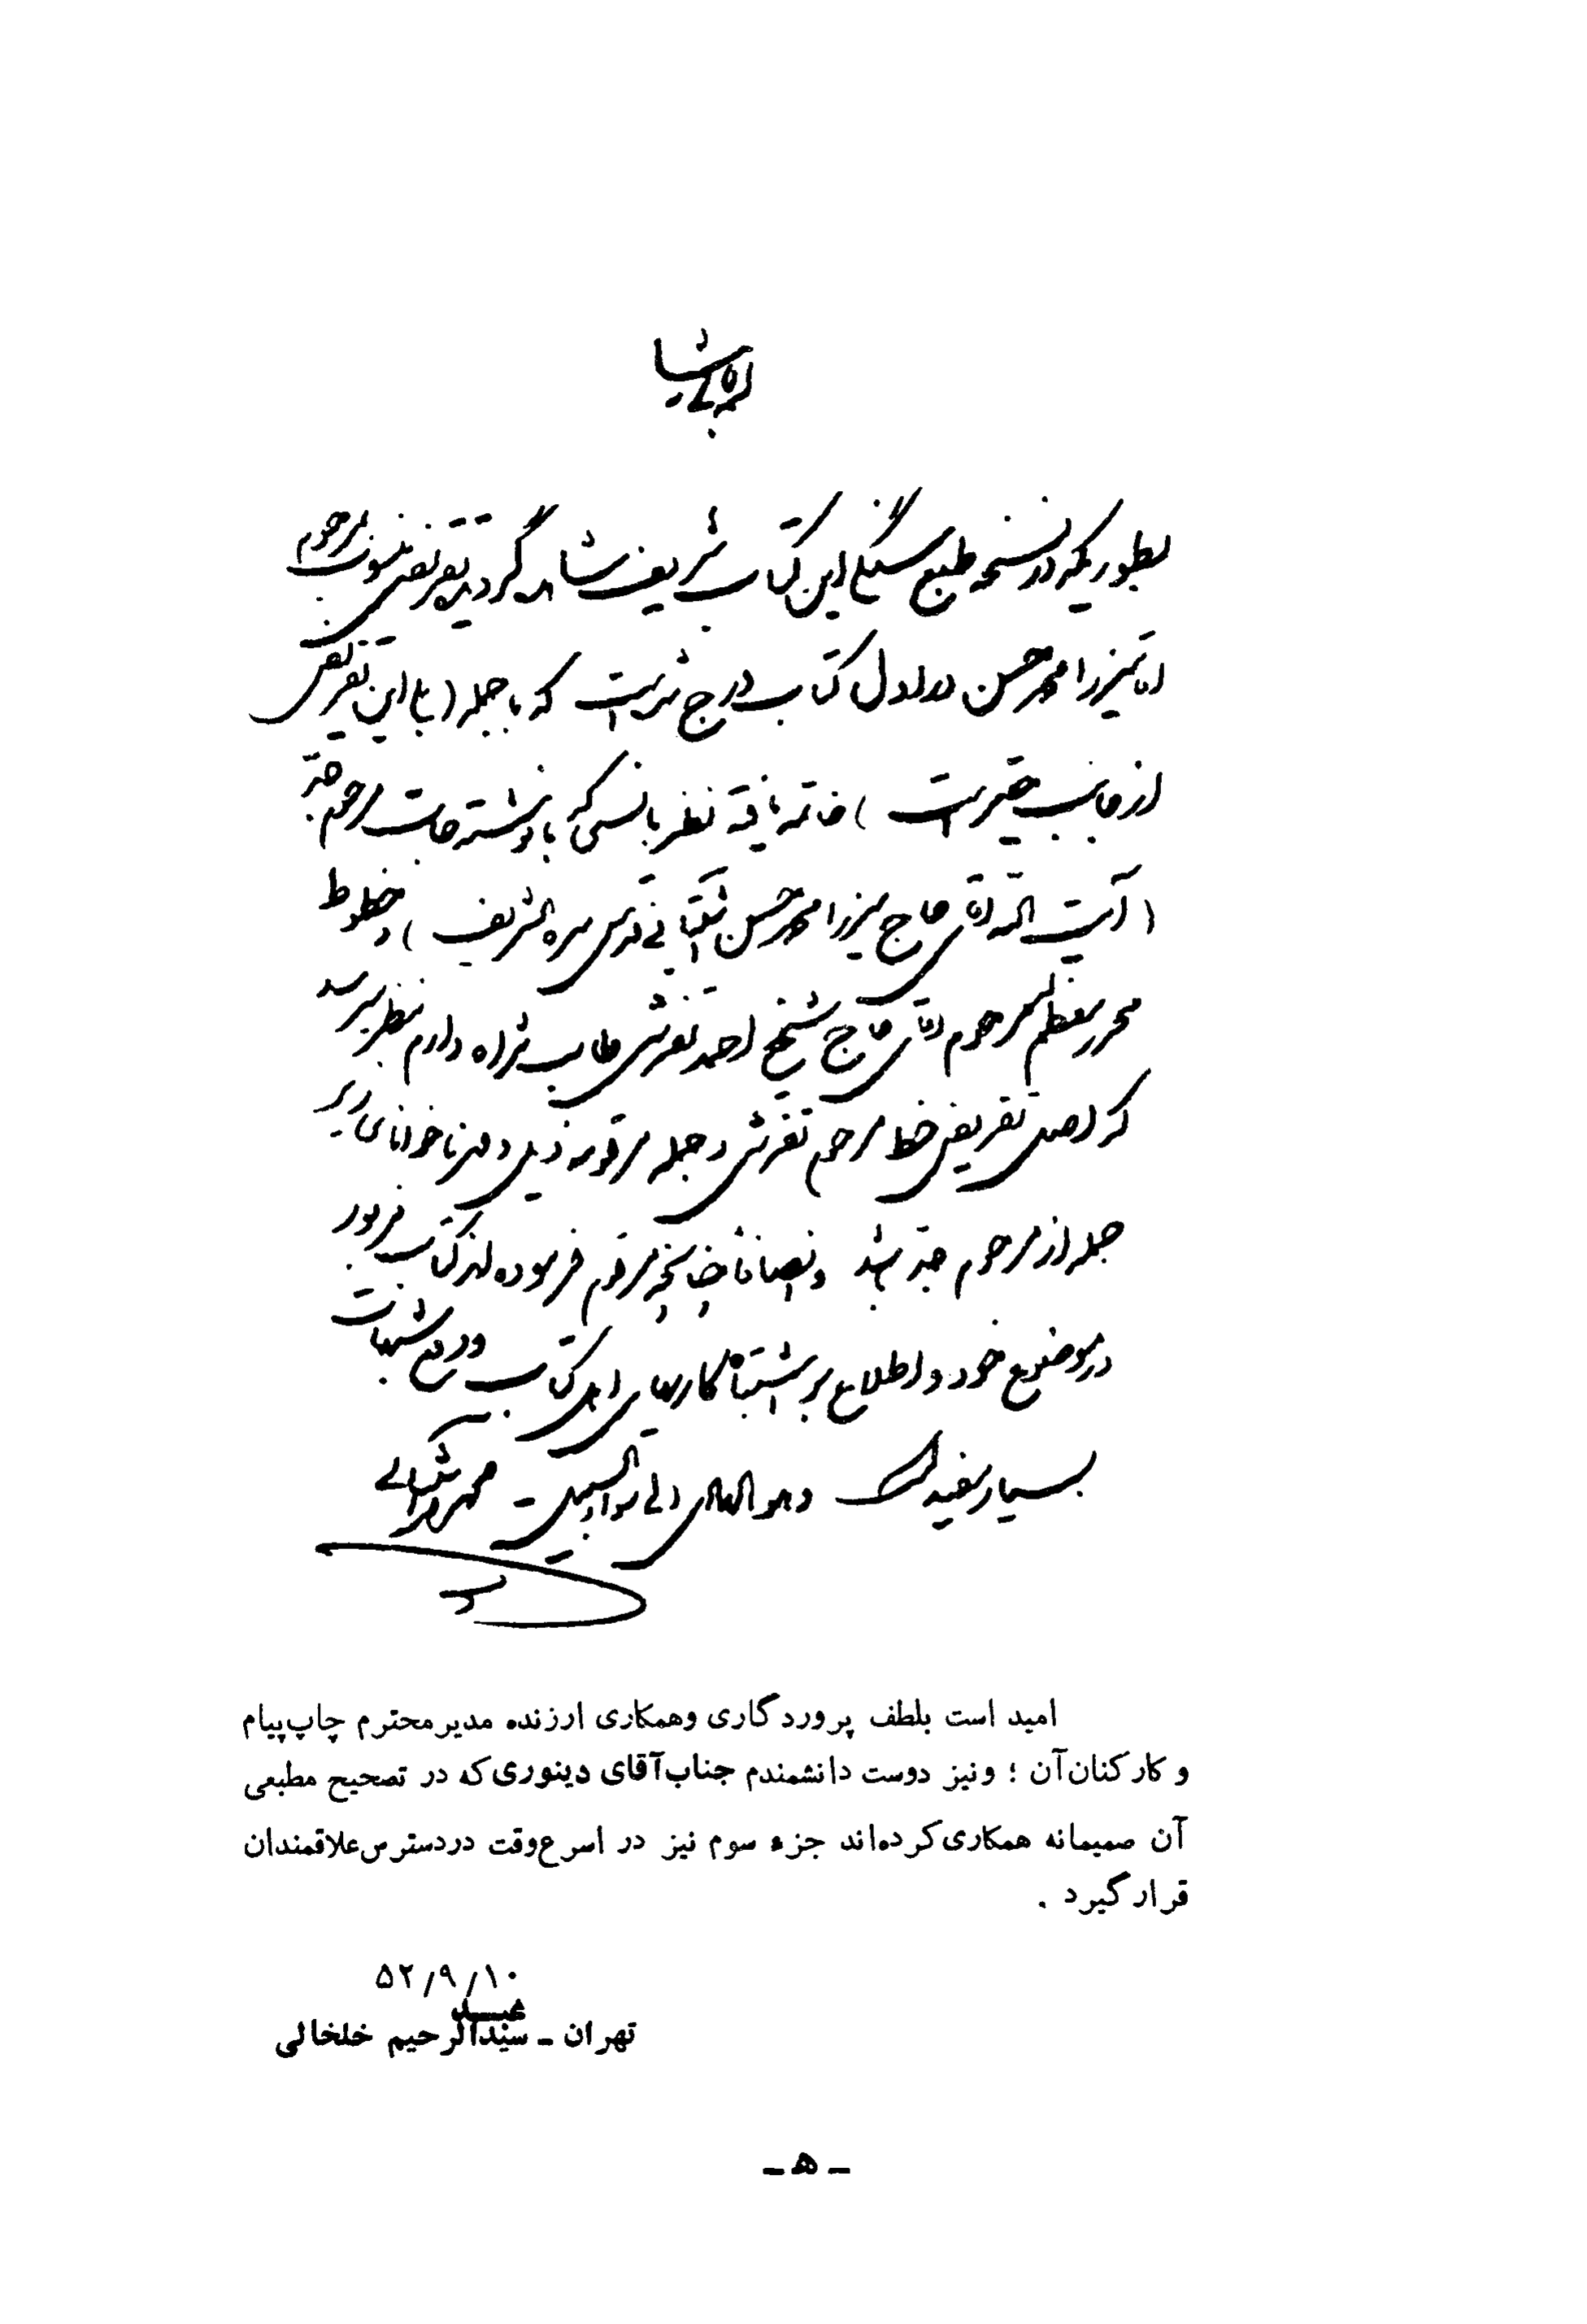 بطوریکه در نسخه طبع سنگی این کتاب شریف مشاهد گردید تقریض منسوب بمرحوم
آقا میرزا محمد حسن در اول کتاب درج شده است که با جمله (با این تقریض
از جانب حقیر است) خاتمه یافته نظر بانسی که با نوشته جات مرحوم جد
(آیت الله آقای حاج میرزا محمد حسن آشتیانی قدس سره الشریف) و خطوط
محرر معظم مرحوم آقای حاج شیخ احمد تفرشی طاب ثراه دارم بنظر میرسد
که اصل تقریض خط مرحوم تفرشی و جمله مرقومه ذیل و مهر ناخوانای زیر
جمله از مرحوم جد باشد و انصافا چنانچه مرقوم فرموده اند کتاب مزبور
در موضوع خود و اطلاع بر اشتباه کاریهای اهل کتاب و رفع شبهات
بسیار مفید است وهو الهادی الی سواء السبیل آشتیانی
امید است بلطف پروردگاری وهمکاری ارزنده مدیر محترم چاپ پیام
و کارکنان آن ؛ ونیز دوست دانشمندم جناب آقای دینوری که در تصحیح مطبعی
آن صمیمانه همکاری کرده‌اند جزء سوم نیز در اسرع وقت در دسترس علاقمندان
قرار گیرد .
۵۲/۹/۱۰
تهران ـ سید عبدالرحیم خلخالی
ـ ه ـ